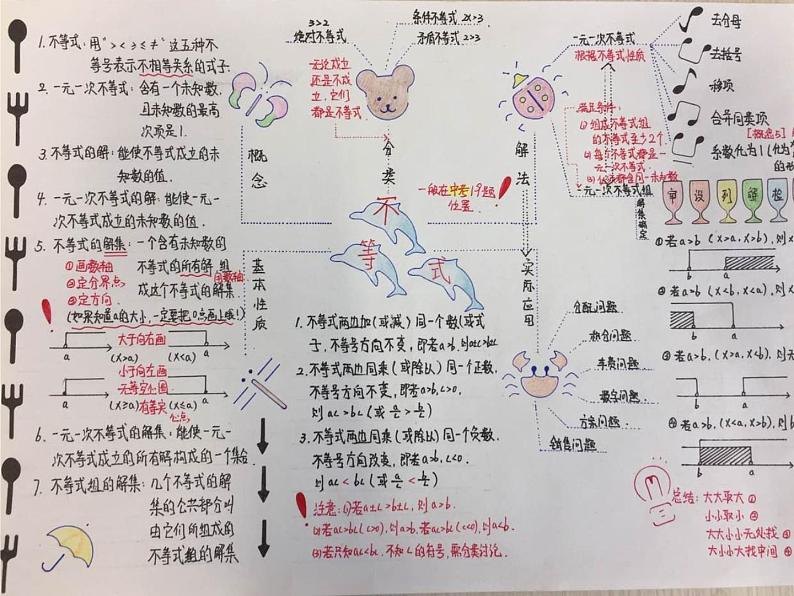 1. 不等式: 用“> < ≥ ≤ ≠”这五种不
等号表示不相等关系的式子
2. 一元一次不等式: 含有一个未知数,
且未知数的最高
次项是1.
3. 不等式的解: 能使不等式成立的未
知数的值.
4. 一元一次不等式的解: 能使一元一
次不等式成立的未知数的值.
5. 不等式的解集: 一个含有未知数的
不等式的所有解,组
成这个不等式的解集
①画数轴
②定分界点
③定方向.
(如果知道a的大小,一定要把0点画上哦!)
大于向右画
a (x>a) (x<a) a
小于向左画
无等空心圈
a (x≥a) (x≤a) a
有等实心点
6. 一元一次不等式的解集: 能使一元一
次不等式成立的所有解,构成的一个集合.
7. 不等式组的解集: 几个不等式的解
集的公共部分叫
由它们所组成的
不等式组的解集
概念
3>2
绝对不等式
条件不等式 2x>3
矛盾不等式 2>3
无论成立
还是不成
立,它们
都是不等式
分类
不
等
式
一般在中考19题
位置.
解法
一元一次不等式
根据不等式性质
去分母
去括号
移项
合并同类项
系数化为1(化为
满足条件:
①组成不等式组
的不等式至少2个.
②每个不等式都是一
元一次不等式.
一元一次不等式组
解集确定
审 设 列 解 检
①若a>b (x>a, x>b), 则x
b a
②若a>b, (x<b, x<a), 则x
b a
③若a>b, (x>a, x<b), 则无
b a
④若a>b, (x<a, x>b), 则b
b a
总结: 大大取大①
小小取小②
大大小小无处找③
大小小大找中间④
实际应用
分配问题
积分问题
车费问题
数字问题
方案问题
销售问题
基本性质
1. 不等式两边加(或减)同一个数(或式
子,不等号方向不变,即若a>b,则a±c>b±c
2. 不等式两边同乘(或除以)同一个正数,
不等号方向不变,即若a>b,c>0,
则ac>bc(或a/c>b/c)
3. 不等式两边同乘(或除以)同一个负数,
不等号方向改变,即若a>b,c<0,
则ac<bc(或a/c<b/c)
注意: ①若a±c>b±c,则a>b.
②若ac>bc(c>0),则a>b,若ac>bc(c<0),则a<b.
③若只知ac<bc,不知c的符号,需分类讨论.